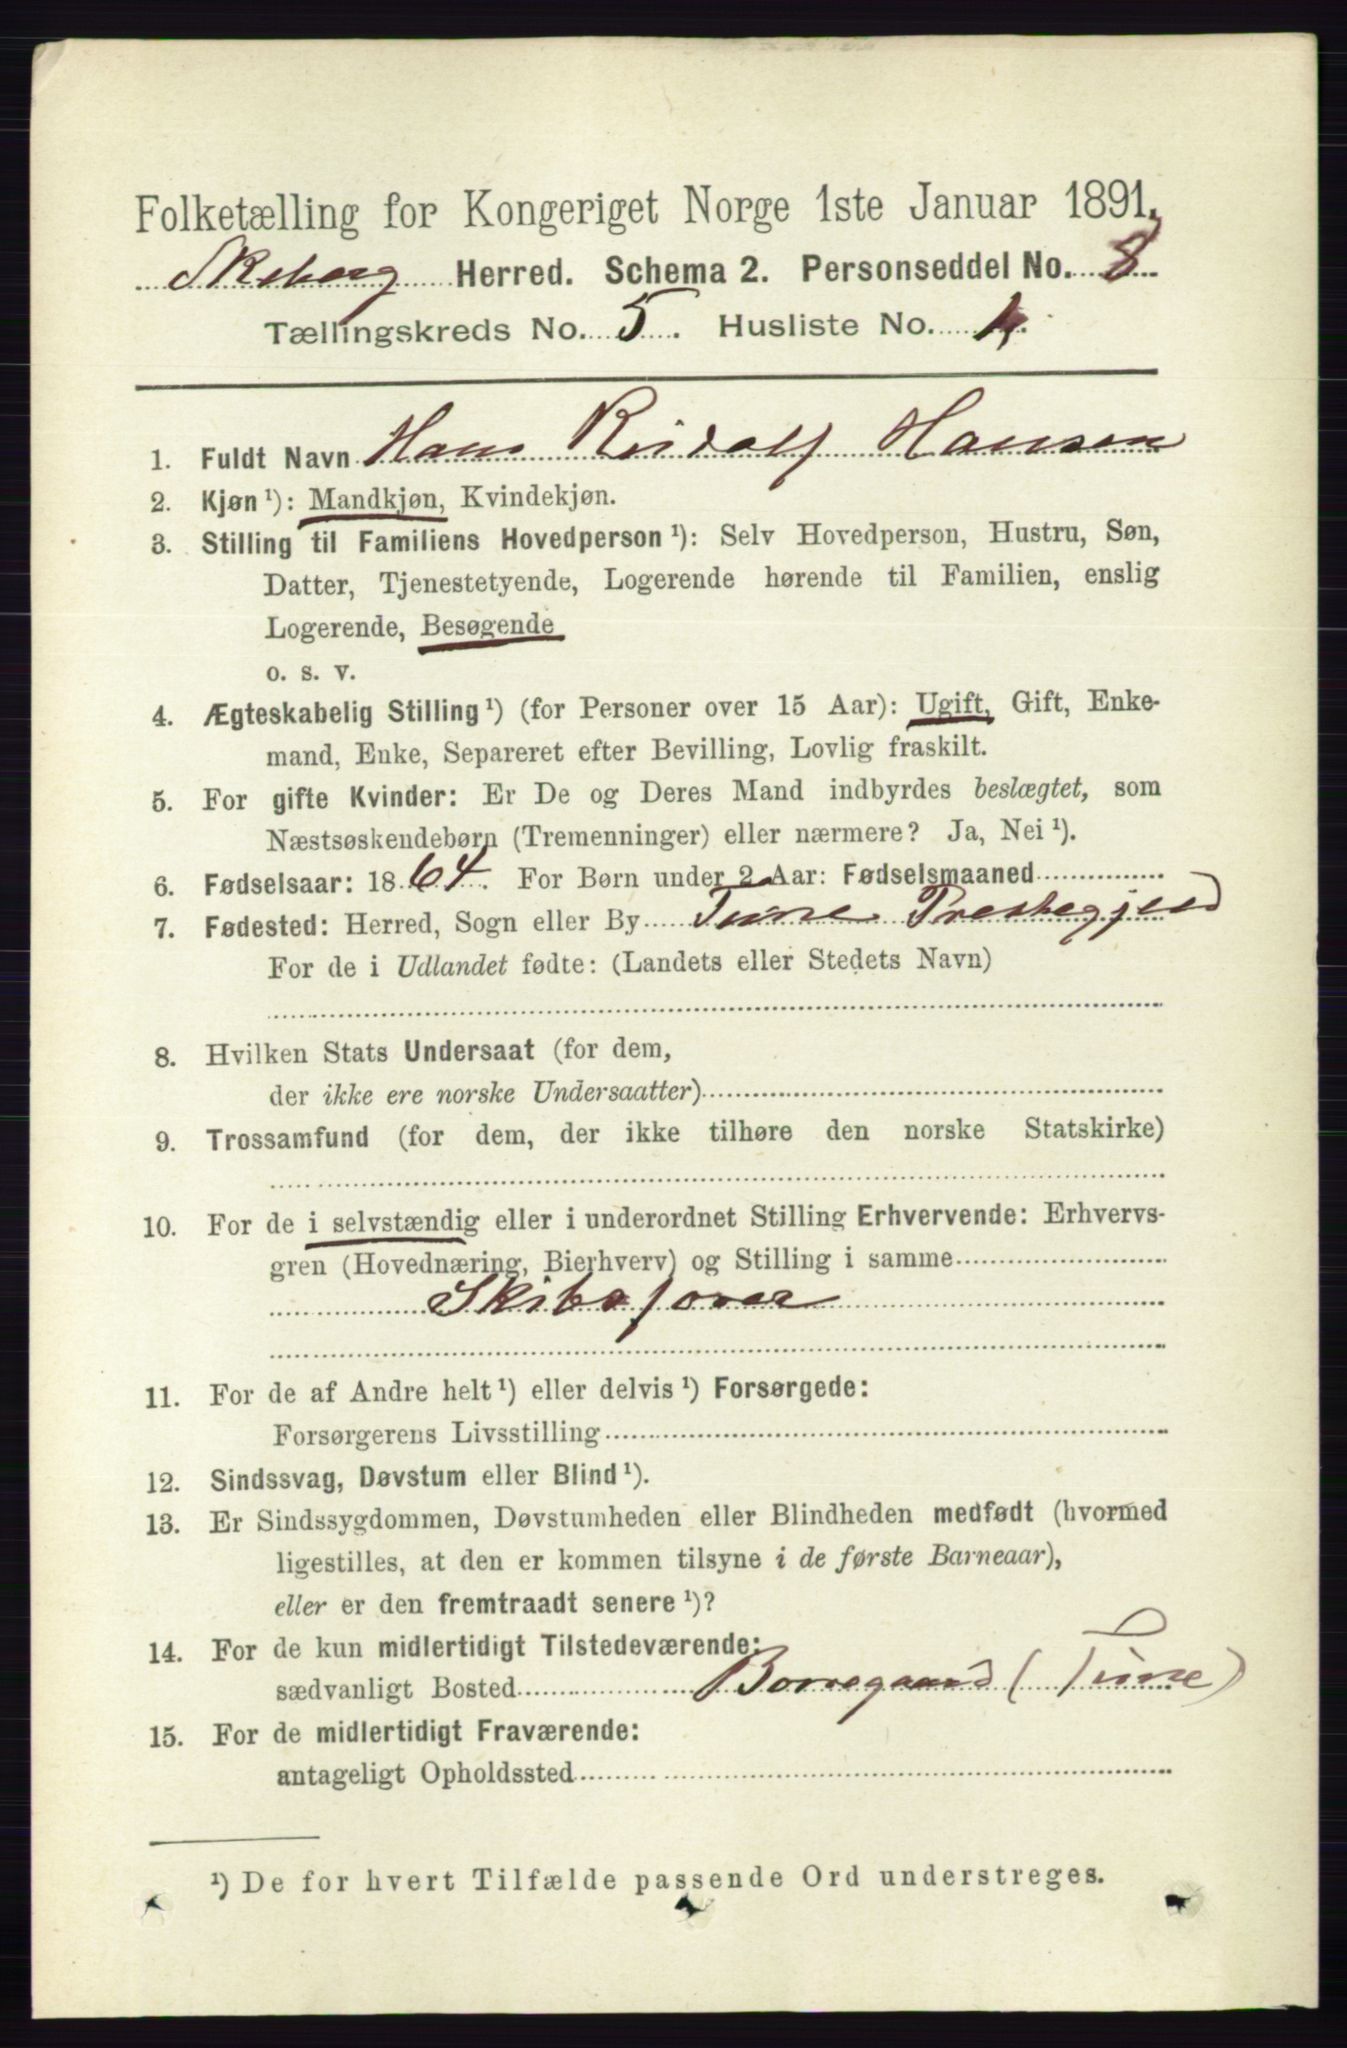 Folketælling for Kongeriget Norge 1ste Januar 1891.
Skeberg Herred. Schema 2. Personseddel No. 8
Tællingskreds No. 5. Husliste No. 4.
1. Fuldt Navn Hans Rudolf Hansen
2. Kjøn ¹): Mandkjøn, Kvindekjøn.
3. Stilling til Familiens Hovedperson ¹): Selv Hovedperson, Hustru, Søn,
Datter, Tjenestetyende, Logerende hørende til Familien, enslig
Logerende, Besøgende
o. s. v.
4. Ægteskabelig Stilling ¹) (for Personer over 15 Aar): Ugift, Gift, Enke-
mand, Enke, Separeret efter Bevilling, Lovlig fraskilt.
5. For gifte Kvinder: Er De og Deres Mand indbyrdes beslægtet, som
Næstsøskendebørn (Tremenninger) eller nærmere? Ja, Nei ¹).
6. Fødselsaar: 1864. For Børn under 2 Aar: Fødselsmaaned
7. Fødested: Herred, Sogn eller By Tune Prestegjeld
For de i Udlandet fødte: (Landets eller Stedets Navn)
8. Hvilken Stats Undersaat (for dem,
der ikke ere norske Undersaatter)
9. Trossamfund (for dem, der ikke tilhøre den norske Statskirke)
10. For de i selvstændig eller i underordnet Stilling Erhvervende: Erhvervs-
gren (Hovednæring, Bierhverv) og Stilling i samme
Skibsfører
11. For de af Andre helt ¹) eller delvis ¹) Forsørgede:
Forsørgerens Livsstilling
12. Sindssvag, Døvstum eller Blind ¹).
13. Er Sindssygdommen, Døvstumheden eller Blindheden medfødt (hvormed
ligestilles, at den er kommen tilsyne i de første Barneaar),
eller er den fremtraadt senere ¹)?
14. For de kun midlertidigt Tilstedeværende:
sædvanligt Bosted Borregaard (Tune)
15. For de midlertidigt Fraværende:
antageligt Opholdssted
¹) De for hvert Tilfælde passende Ord understreges.